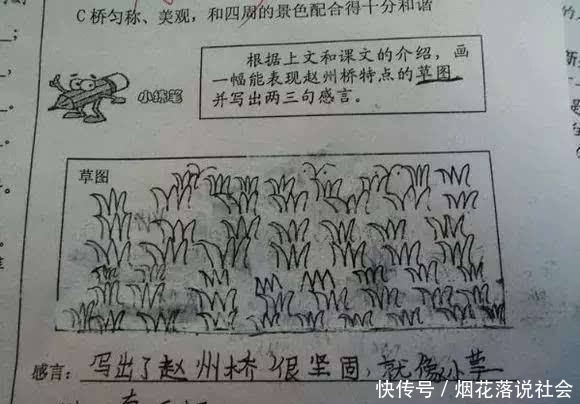 C桥匀称、美观,和四周的景色配合得十分和谐
根据上文和课文的介绍,画
一幅能表现赵州桥特点的草图
并写出两三句感言。
小练笔
草图
感言:写出了赵州桥很坚固,就像小草
快传号/烟花落说社会